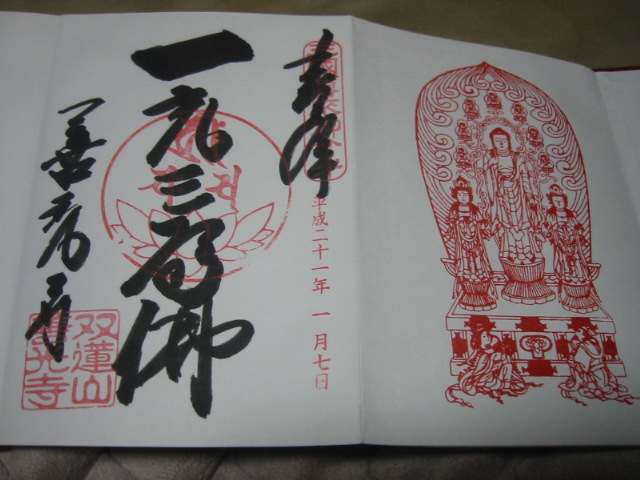 奉拝
平成二十一年 一月七日
一光三尊佛
善光寺
双蓮山
善光寺